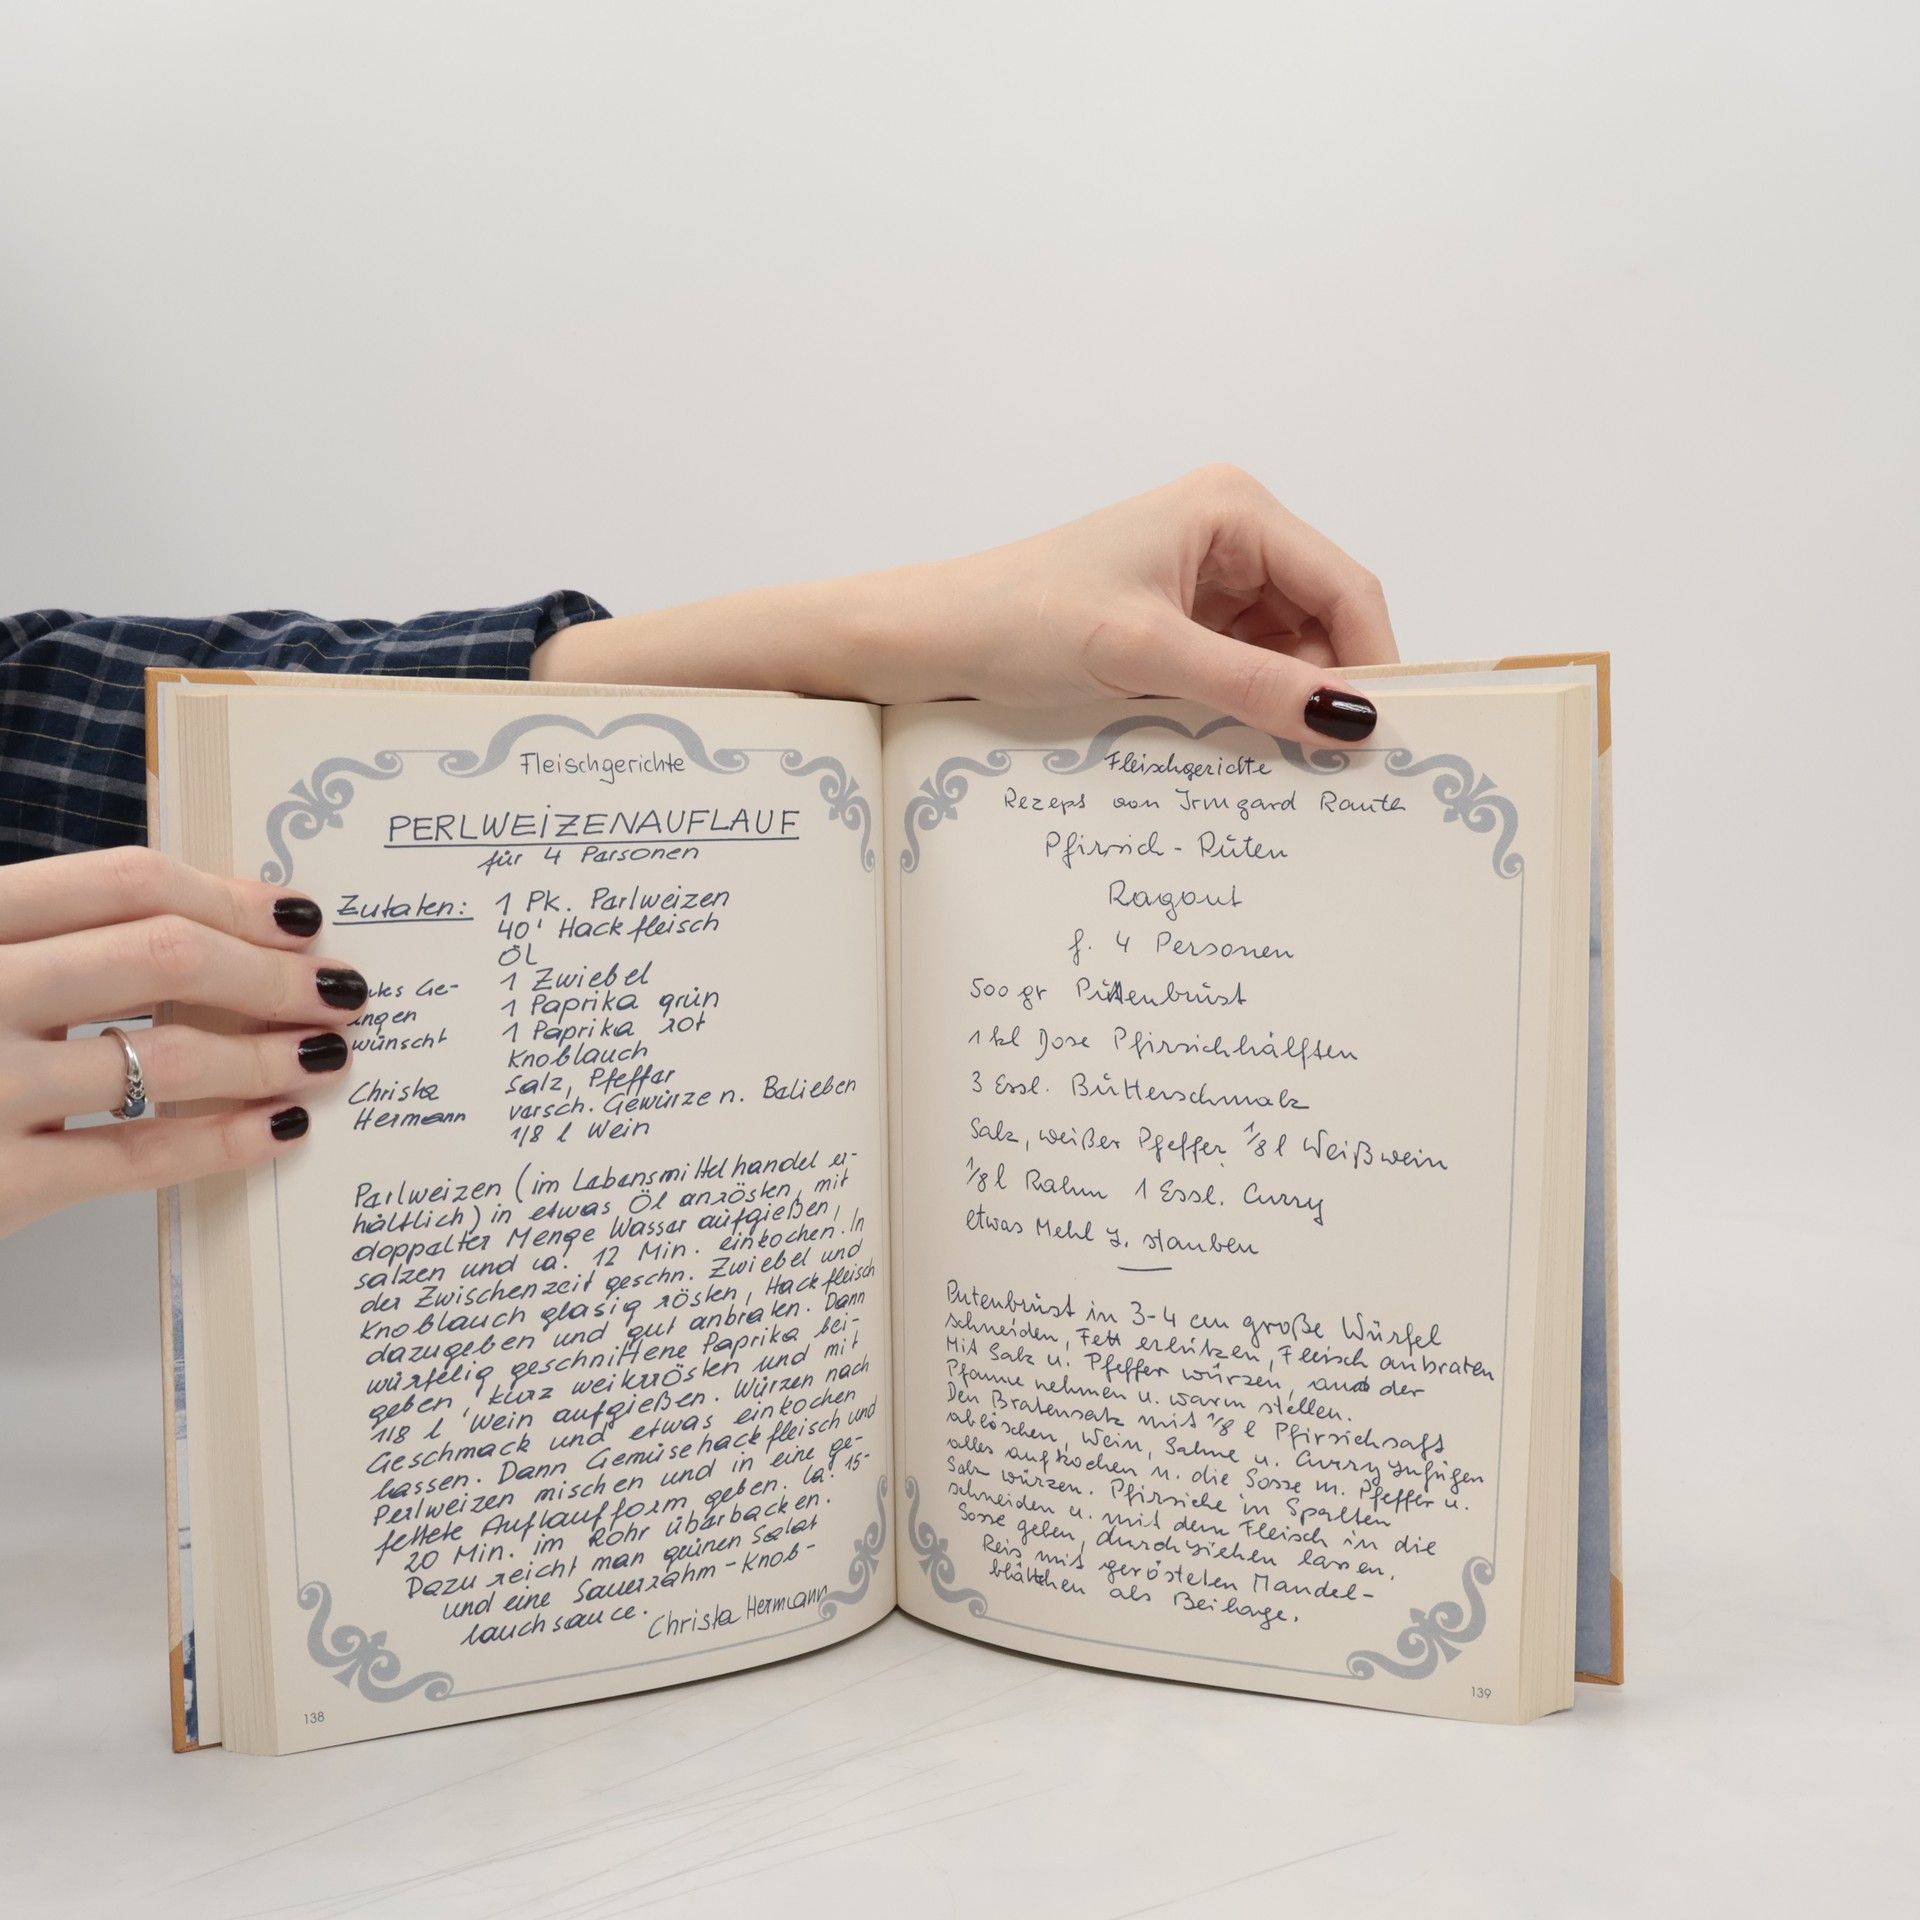 Fleischgerichte
PERLWEIZENAUFLAUF
für 4 Personen
Zutaten: 1 Pk. Perlweizen
40' Hackfleisch
Öl
1 Zwiebel
1 Paprika grün
1 Paprika rot
Knoblauch
Salz, Pfeffer
versch. Gewürze n. Belieben
1/8 l Wein
Ge-
ingen
wünscht
Christa
Hermann
Perlweizen (im Lebensmittelhandel er-
hältlich) in etwas Öl anrösten, mit
doppelter Menge Wasser aufgießen,
salzen und ca. 12 Min. einkochen. In
der Zwischenzeit geschn. Zwiebel und
Knoblauch glasig rösten, Hackfleisch
dazugeben und gut anbraten. Dann
würfelig geschnittene Paprika bei-
geben, kurz weiterrösten und mit
1/8 l Wein aufgießen. Würzen nach
Geschmack und etwas einkochen
lassen. Dann Gemüsehackfleisch und
Perlweizen mischen und in eine ge-
fettete Auflaufform geben. Ca. 15-
20 Min. im Rohr überbacken.
Dazu reicht man grünen Salat
und eine Sauerrahm-Knob-
lauchsauce.
Christa Hermann
138
Fleischgerichte
Rezept von Irmgard
Pfirsich-Puten
Ragout
f. 4 Personen
500 gr Puttenbrust
1 kl Dose Pfirsichhälften
3 Essl. Butterschmalz
Salz, weißer Pfeffer 1/8 l Weißwein
1/8 l Rahm 1 Essl. Curry
etwas Mehl z. stauben
Putenbrust in 3-4 cm große Würfel
schneiden, Fett erhitzen, Fleisch anbraten
Mit Salz u. Pfeffer würzen, aus der
Pfanne nehmen u. warm stellen.
Den Bratensatz mit 1/8 l Pfirsichsaft
ablöschen, Wein, Sahne u. Curry zufügen
alles aufkochen u. die Sosse m. Pfeffer u.
Salz würzen. Pfirsiche in Spalten
schneiden u. mit dem Fleisch in die
Sosse geben, durchziehen lassen.
Reis mit gerösteten Mandel-
blättchen als Beilage.
139